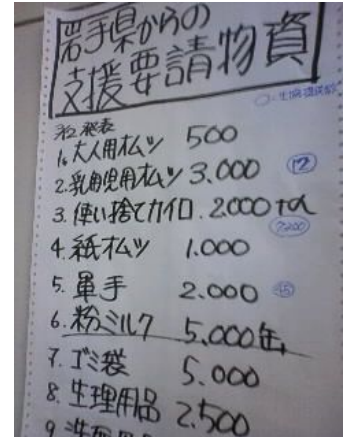 岩手県からの
支援要請物資
1. 大人用オムツ 500
2. 乳用児用オムツ 3.000 ⑫
3. 使い捨てカイロ. 2.000 +α
7,200
4. 紙オムツ 1.000
5. 軍手 2.000 ㊺
6. 粉ミルク 5.000缶
7. ゴミ袋 5.000
8. 生理用品 2.500
9